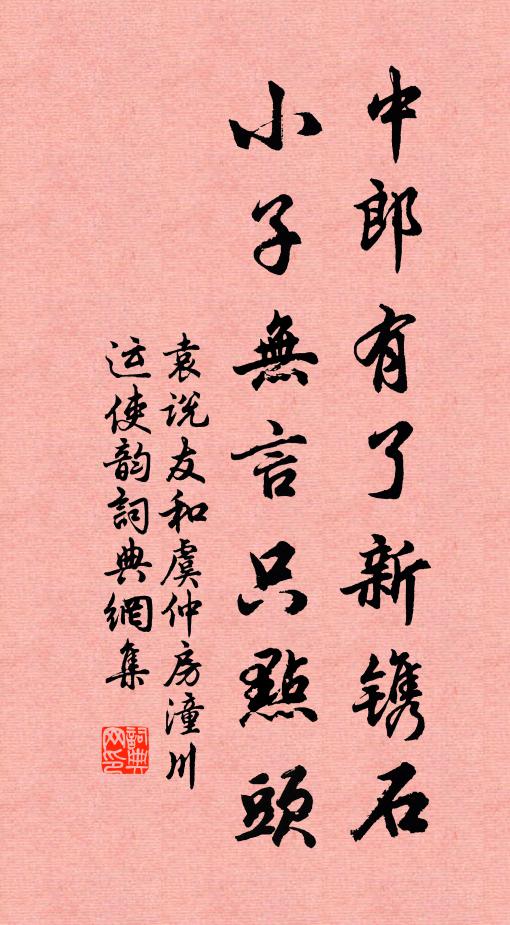 中郎有了新镌石
小子無言只點頭
袁说友和虞仲房潼川
运使韵詞典網集
詞典网印